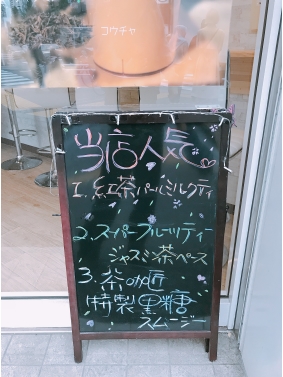 コウチャ
当店人気
1.紅茶パールミルクティ
2.スーパーフルーツティー
ジャスミン茶ベース
3.茶咖匠
特製黒糖
スムージー